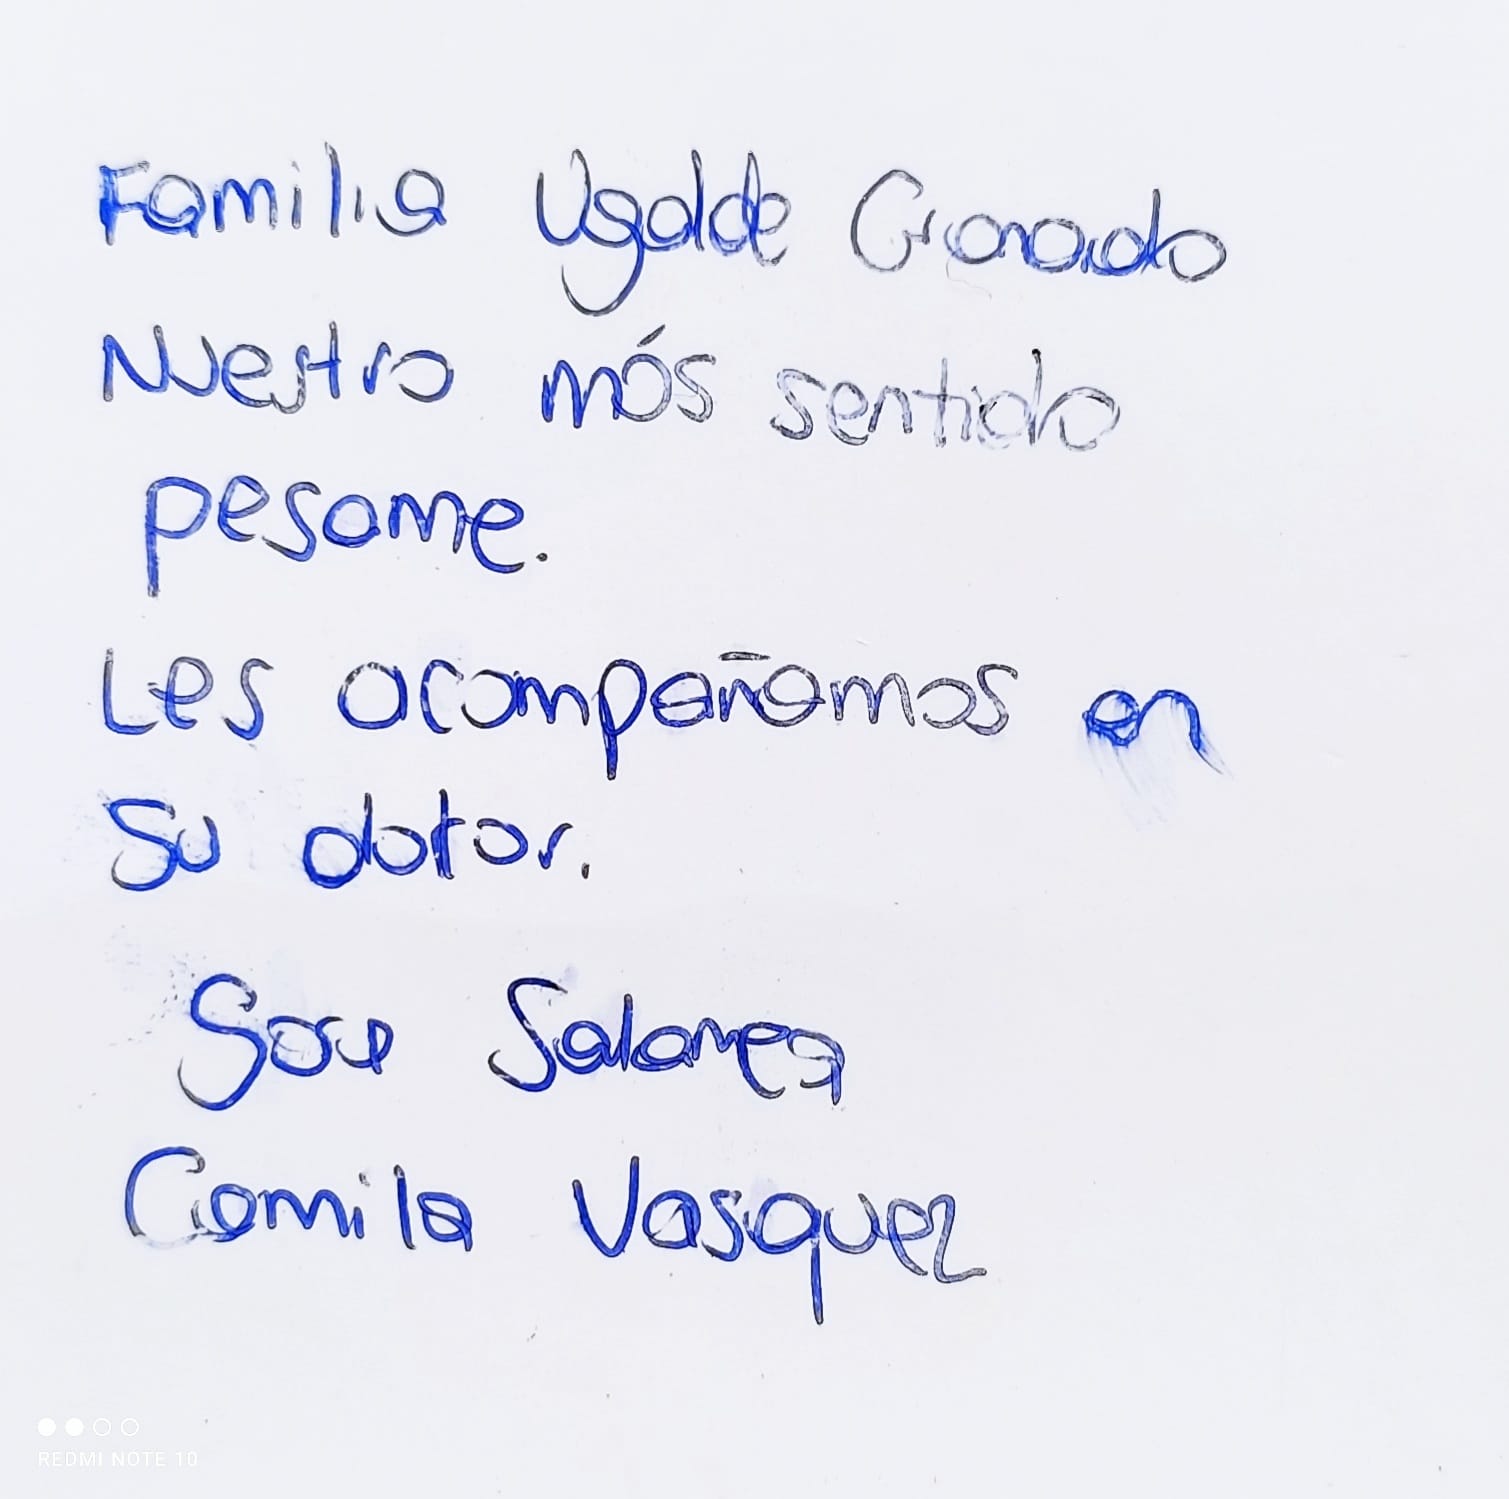 Familia Ugalde Granado
Nuestro más sentido
pesame.
Les acompañamos en
su dolor.
Jose Salamea
Camila Vasquez
REDMI NOTE 10